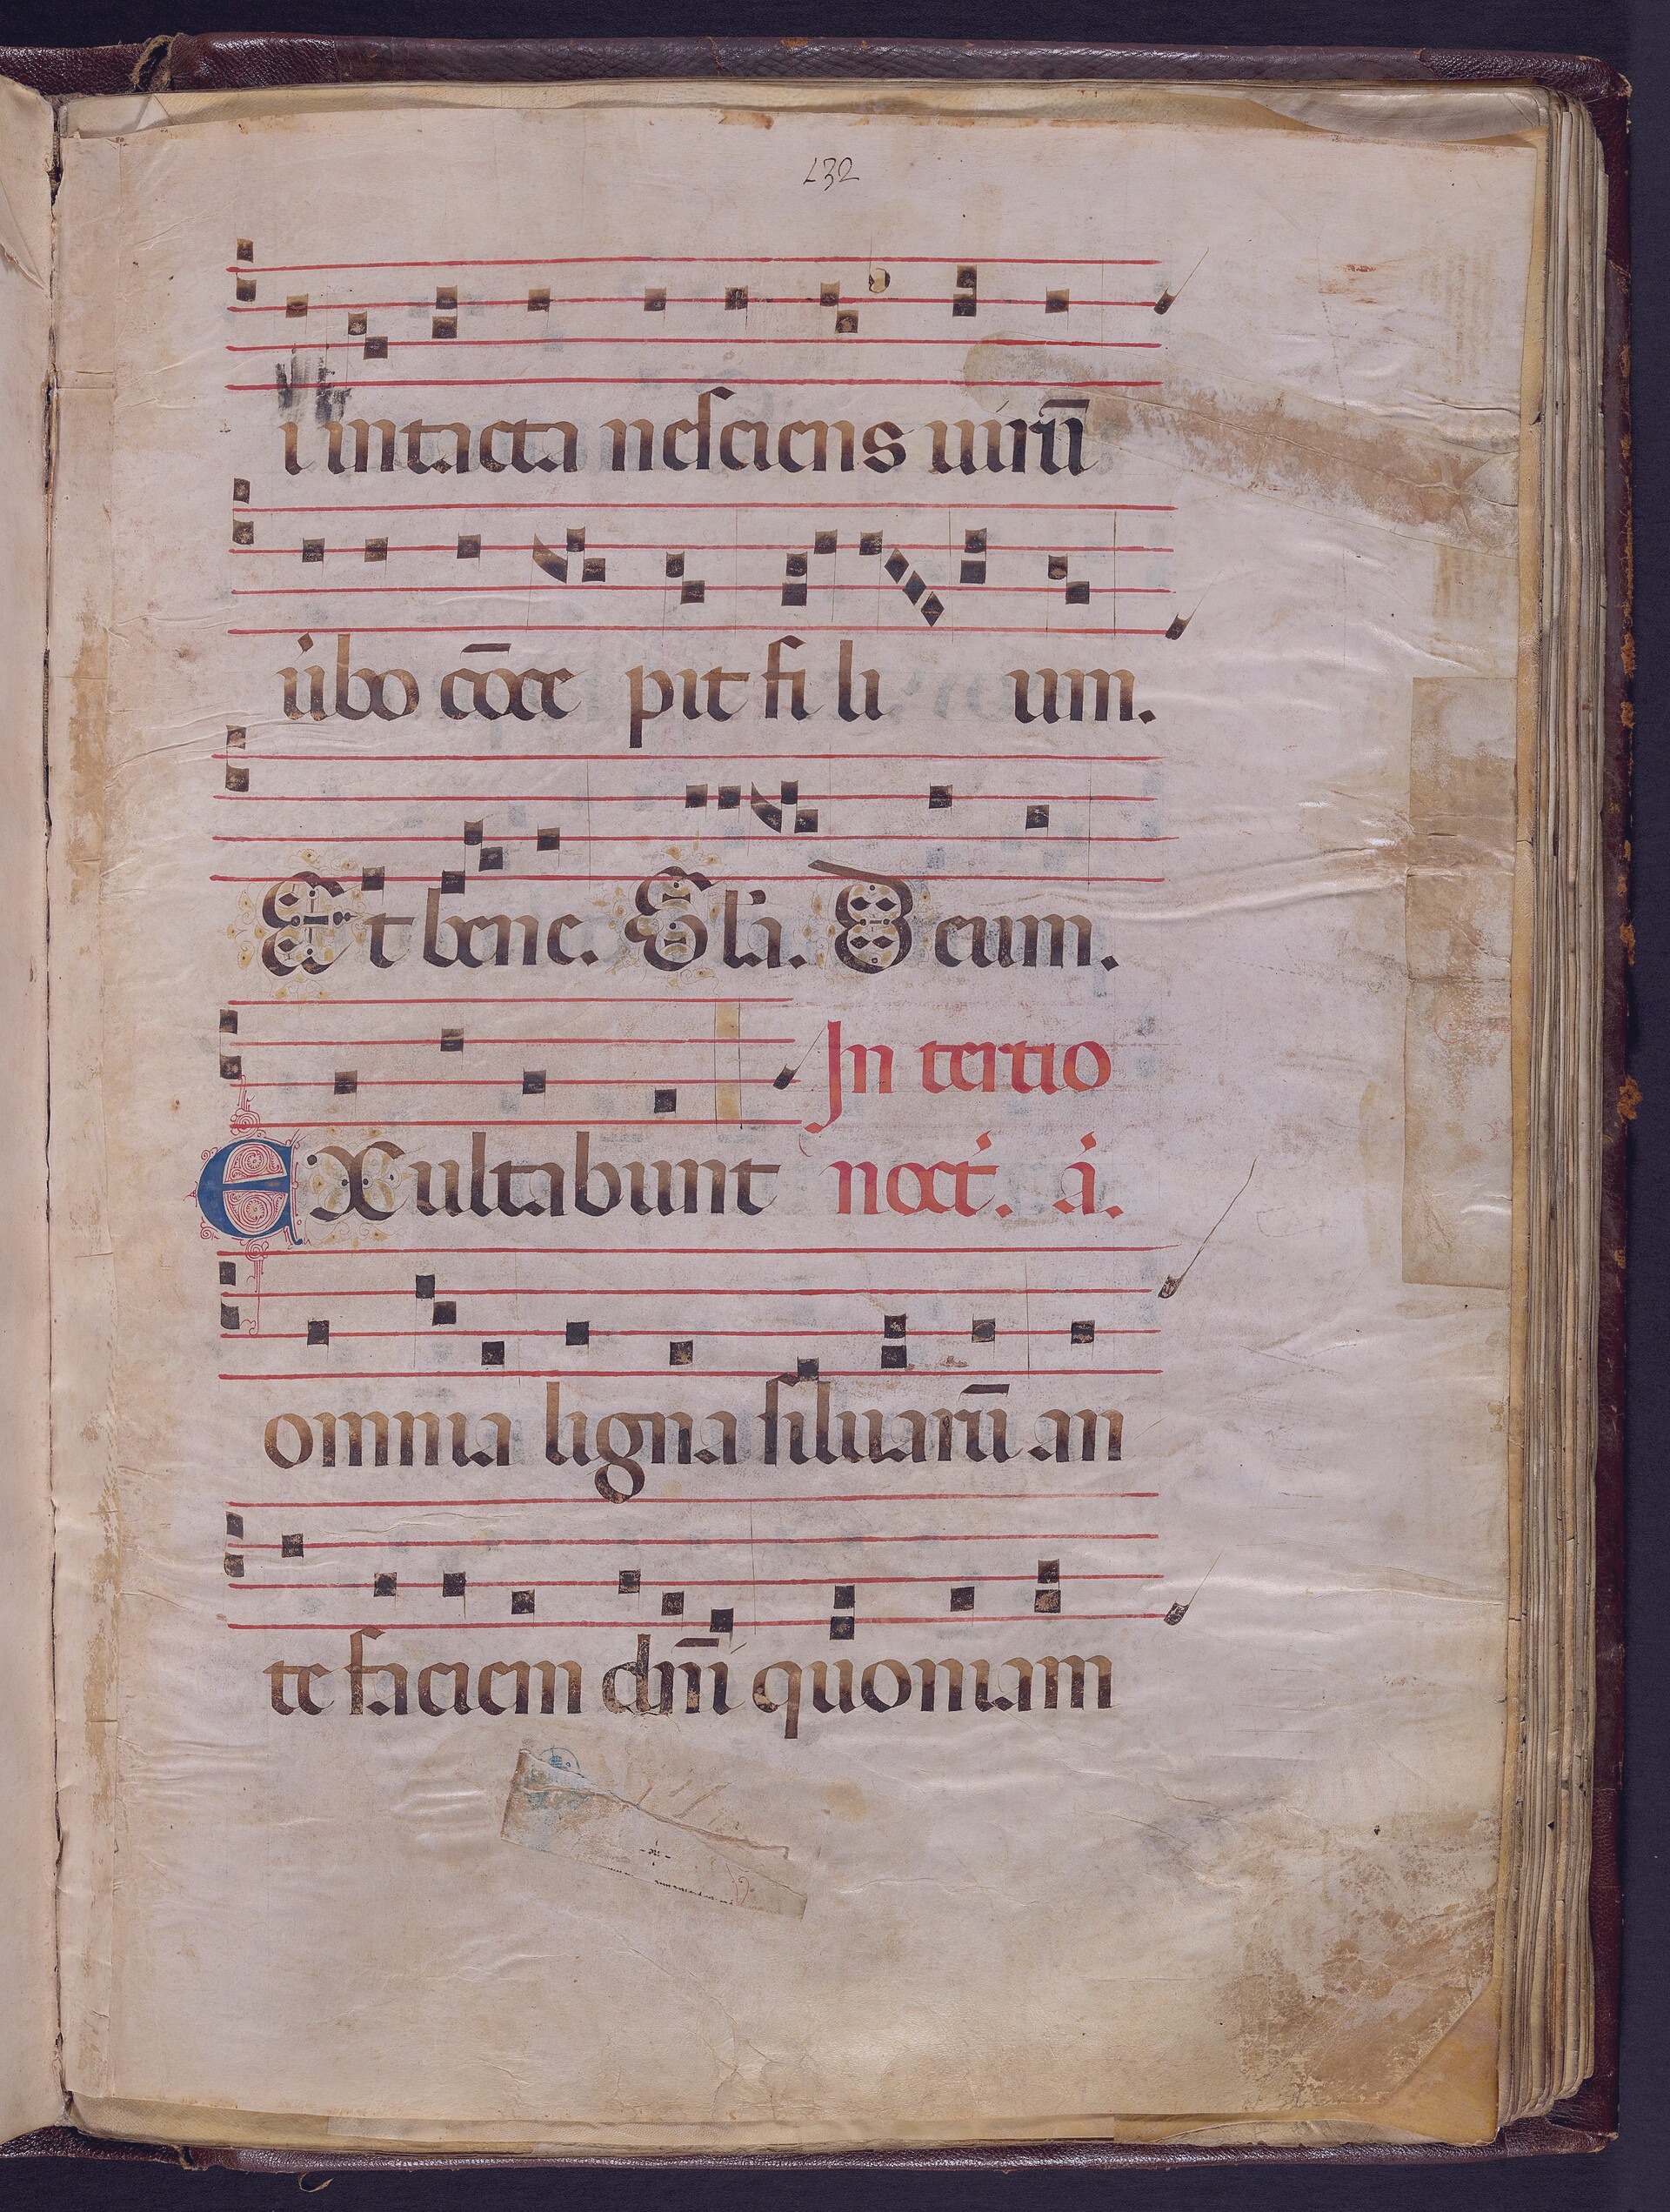 132
i intacta nesciens uirū
uerbo cōce pit fi li um.
Et bene. Gl'i. Deum.
In tertio
Exultabunt noct. a.
omnia ligna siluarū an
te faciem dn̄i quoniam